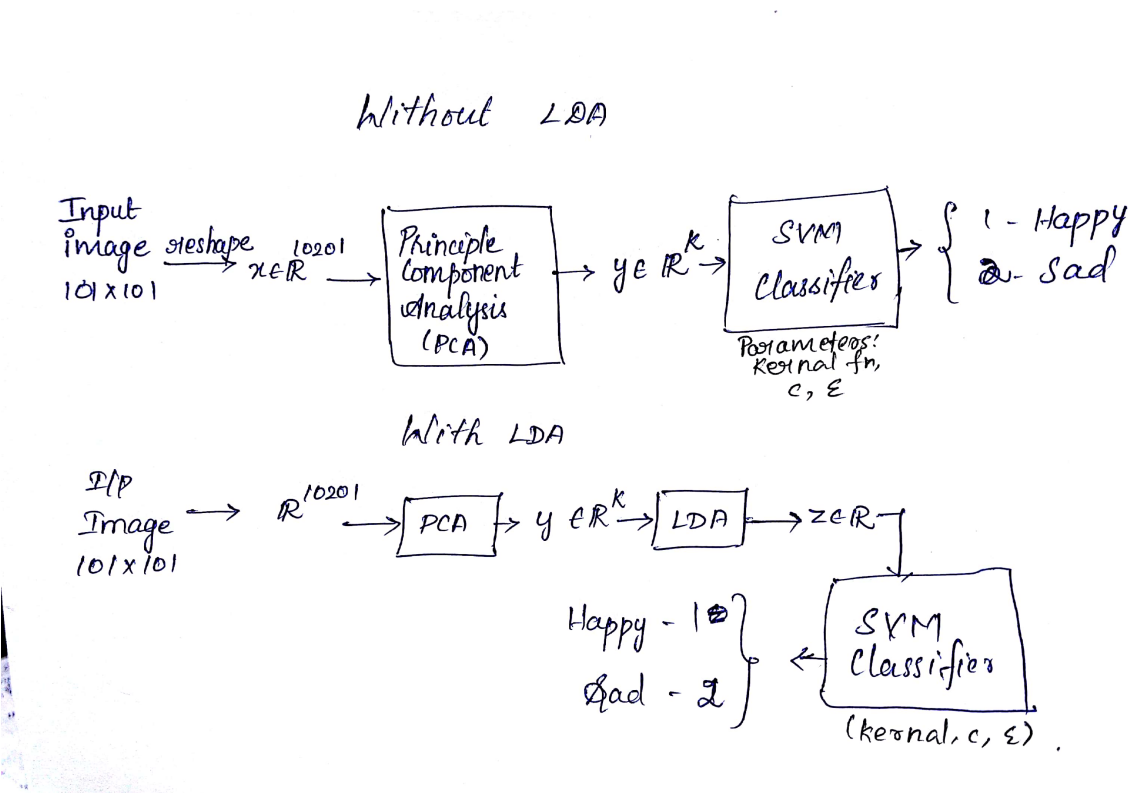 Without LDA
Input
image reshape x∈ℝ^10201
101 x 101
Principle
Component
Analysis
(PCA)
y ∈ ℝ^K
SVM
Classifier
Parameters:
Kernal fn,
C, ε
1 - Happy
2 - Sad
With LDA
I/P
Image
101 x 101
ℝ^10201
PCA
y ∈ ℝ^K
LDA
z∈ℝ
SVM
Classifier
(kernal, c, ε) .
Happy - 1
Sad - 2